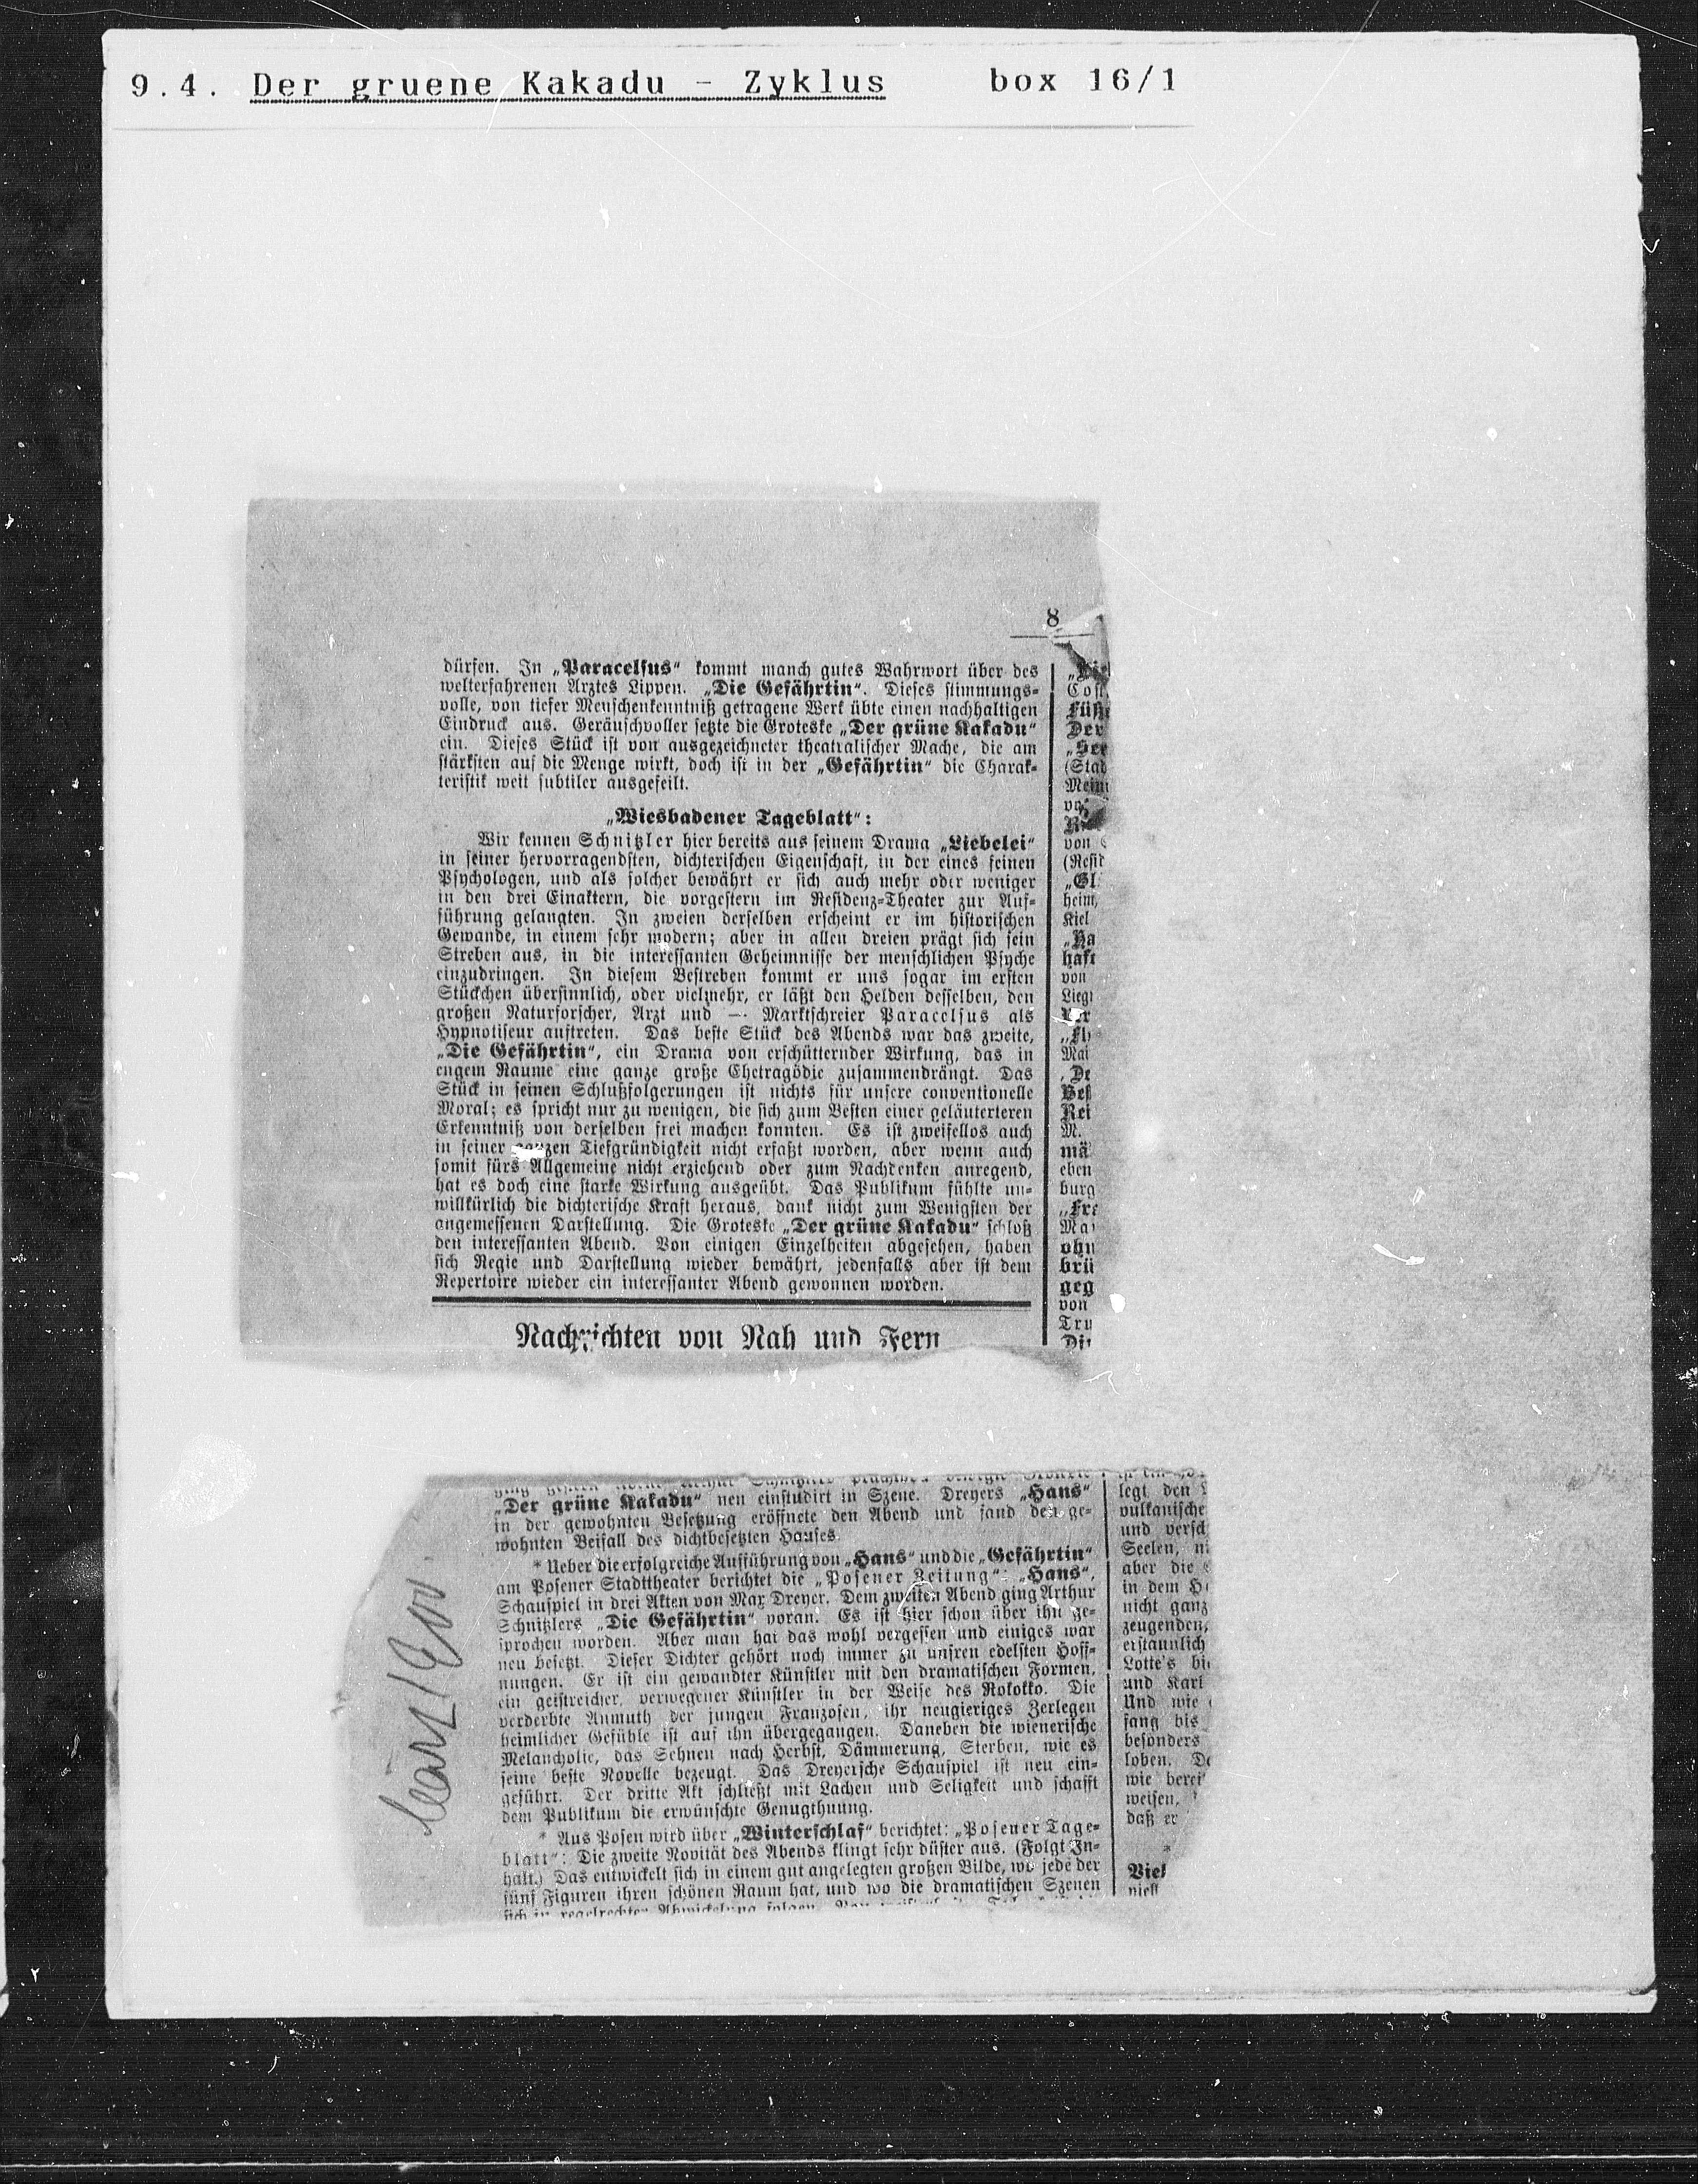 9.4. Der gruene Kakadu - Zyklus box 16/1
8
dürfen. In „Paracelsus“ kommt manch gutes Wahrwort über des
welterfahrenen Arztes Lippen. „Die Gefährtin“. Dieses stimmungs-
volle, von tiefer Menschenkenntniß getragene Werk übte einen nachhaltigen
Eindruck aus. Geräuschvoller setzte die Groteske „Der grüne Kakadu“
ein. Dieses Stück ist von ausgezeichneter theatralischer Mache, die am
stärksten auf die Menge wirkt, doch ist in der „Gefährtin“ die Charak-
teristik weit subtiler ausgefeilt.
„Wiesbadener Tageblatt“:
Wir kennen Schnitzler hier bereits aus seinem Drama „Liebelei“
in seiner hervorragendsten, dichterischen Eigenschaft, in der eines feinen
Psychologen, und als solcher bewährt er sich auch mehr oder weniger
in den drei Einaktern, die vorgestern im Residenz-Theater zur Auf-
führung gelangten. In zweien derselben erscheint er im historischen
Gewande, in einem sehr modern; aber in allen dreien prägt sich sein
Streben aus, in die interessanten Geheimnisse der menschlichen Psyche
einzudringen. In diesem Bestreben kommt er uns sogar im ersten
Stückchen übersinnlich, oder vielmehr, er läßt den Helden desselben, den
großen Naturforscher, Arzt und — Marktschreier Paracelsus als
Hypnotiseur auftreten. Das beste Stück des Abends war das zweite,
„Die Gefährtin“, ein Drama von erschütternder Wirkung, das in
engem Raume eine ganze große Ehetragödie zusammendrängt. Das
Stück in seinen Schlußfolgerungen ist nichts für unsere conventionelle
Moral; es spricht nur zu wenigen, die sich zum Besten einer geläuterteren
Erkenntniß von derselben frei machen konnten. Es ist zweifellos auch
in seiner ganzen Tiefgründigkeit nicht erfaßt worden, aber wenn auch
somit fürs Allgemeine nicht erziehend oder zum Nachdenken anregend,
hat es doch eine starke Wirkung ausgeübt. Das Publikum fühlte un-
willkürlich die dichterische Kraft heraus, dank nicht zum Wenigsten der
angemessenen Darstellung. Die Groteske „Der grüne Kakadu“ schloß
den interessanten Abend. Von einigen Einzelheiten abgesehen, haben
sich Regie und Darstellung wieder bewährt, jedenfalls aber ist dem
Repertoire wieder ein interessanter Abend gewonnen worden.
Nachrichten von Nah und Fern
„Der grüne Kakadu“ neu einstudirt in Szene. Dreyers „Hans“
in der gewohnten Besetzung eröffnete den Abend und fand den ge-
wohnten Beifall des dichtbesetzten Hauses.
* Ueber die erfolgreiche Aufführung von „Hans“ und die „Gefährtin“
am Posener Stadttheater berichtet die „Posener Zeitung“: „Hans“,
Schauspiel in drei Akten von Max Dreyer. Dem zweiten Abend ging Arthur
Schnitzlers „Die Gefährtin“ voran. Es ist hier schon über ihn ge-
sprochen worden. Aber man hat das wohl vergessen und einiges war
neu besetzt. Dieser Dichter gehört noch immer zu unsren edelsten Hoff-
nungen. Er ist ein gewandter Künstler mit den dramatischen Formen,
ein geistreicher, verwegener Künstler in der Weise des Rokokko. Die
verderbte Anmuth der jungen Franzosen, ihr neugieriges Zerlegen
heimlicher Gefühle ist auf ihn übergegangen. Daneben die wienerische
Melancholie, das Sehnen nach Herbst, Dämmerung, Sterben, wie es
seine beste Novelle bezeugt. Das Dreyersche Schauspiel ist neu ein-
geführt. Der dritte Akt schließt mit Lachen und Seligkeit und schafft
dem Publikum die erwünschte Genugthuung.
* Aus Posen wird über „Winterschlaf“ berichtet: „Posener Tage-
blatt“: Die zweite Novität des Abends klingt sehr düster aus. (Folgt In-
halt.) Das entwickelt sich in einem gut angelegten großen Bilde, wo jede der
fünf Figuren ihren schönen Raum hat, und wo die dramatischen Szenen
sich in regelrechter Abwickelung folgen.
legt den
vulkanische
und
Seelen,
aber die
in dem
nicht ganz
zeugenden,
erstaunlich
Lotte's
und Karl
Und wie
fang bis
besonders
loben.
wie
weisen,
daß er